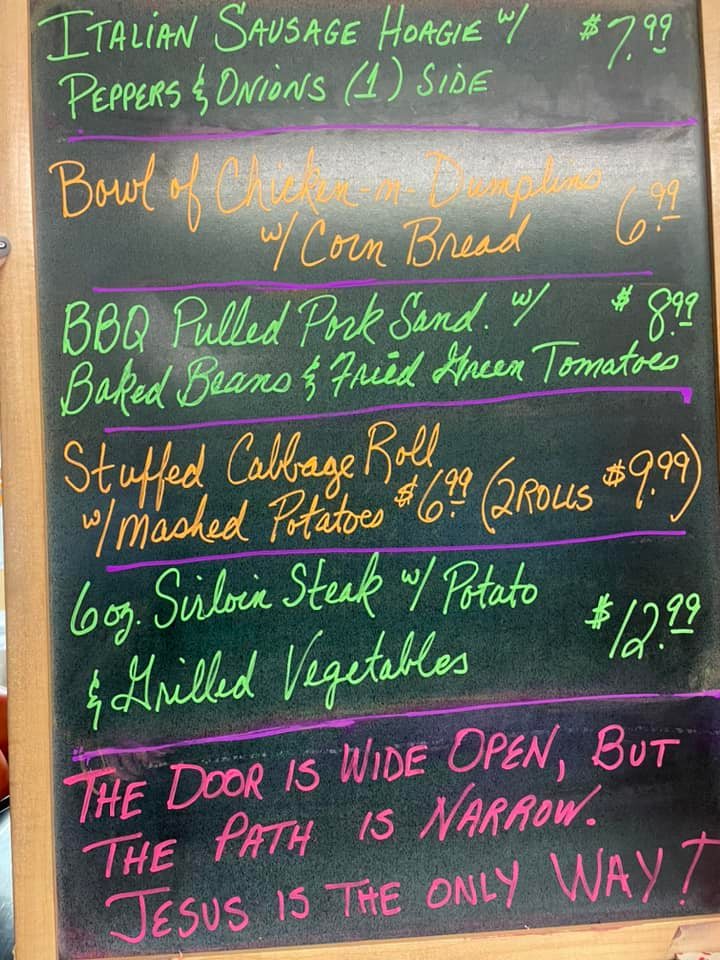 ITALIAN SAUSAGE HOAGIE w/ $7.99
PEPPERS & ONIONS (1) SIDE
Bowl of Chicken-n-Dumplins 6.99
w/ Corn Bread
BBQ Pulled Pork Sand. w/ $8.99
Baked Beans & Fried Green Tomatoes
Stuffed Cabbage Roll
w/ Mashed Potatoes $6.99 (2 ROLLS $9.99)
6 oz. Sirloin Steak w/ Potato $12.99
& Grilled Vegetables
THE DOOR IS WIDE OPEN, BUT
THE PATH IS NARROW.
JESUS IS THE ONLY WAY!